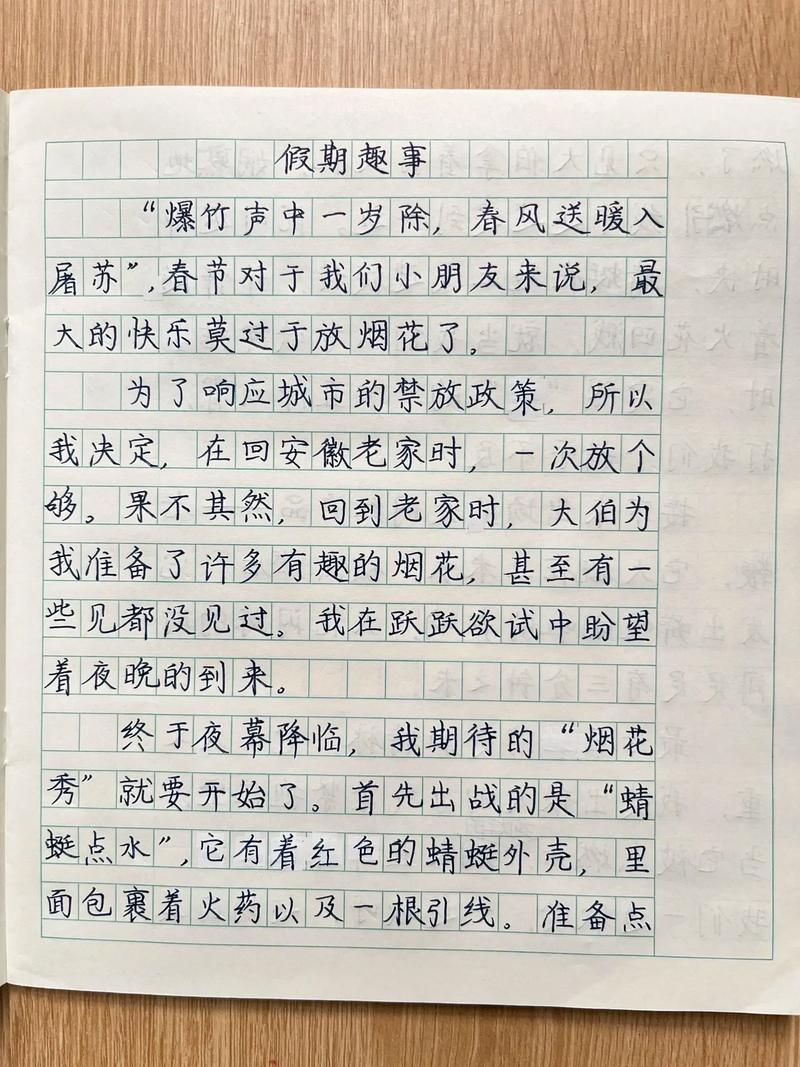 假期趣事
“爆竹声中一岁除，春风送暖入
屠苏”，春节对于我们小朋友来说，最
大的快乐莫过于放烟花了。
为了响应城市的禁放政策，所以
我决定，在回安徽老家时，一次放个
够。果不其然，回到老家时，大伯为
我准备了许多有趣的烟花，甚至有一
些见都没见过。我在跃跃欲试中盼望
着夜晚的到来。
终于夜幕降临，我期待的“烟花
秀”就要开始了。首先出战的是“蜻
蜓点水”，它有着红色的蜻蜓外壳，里
面包裹着火药以及一根引线。准备点